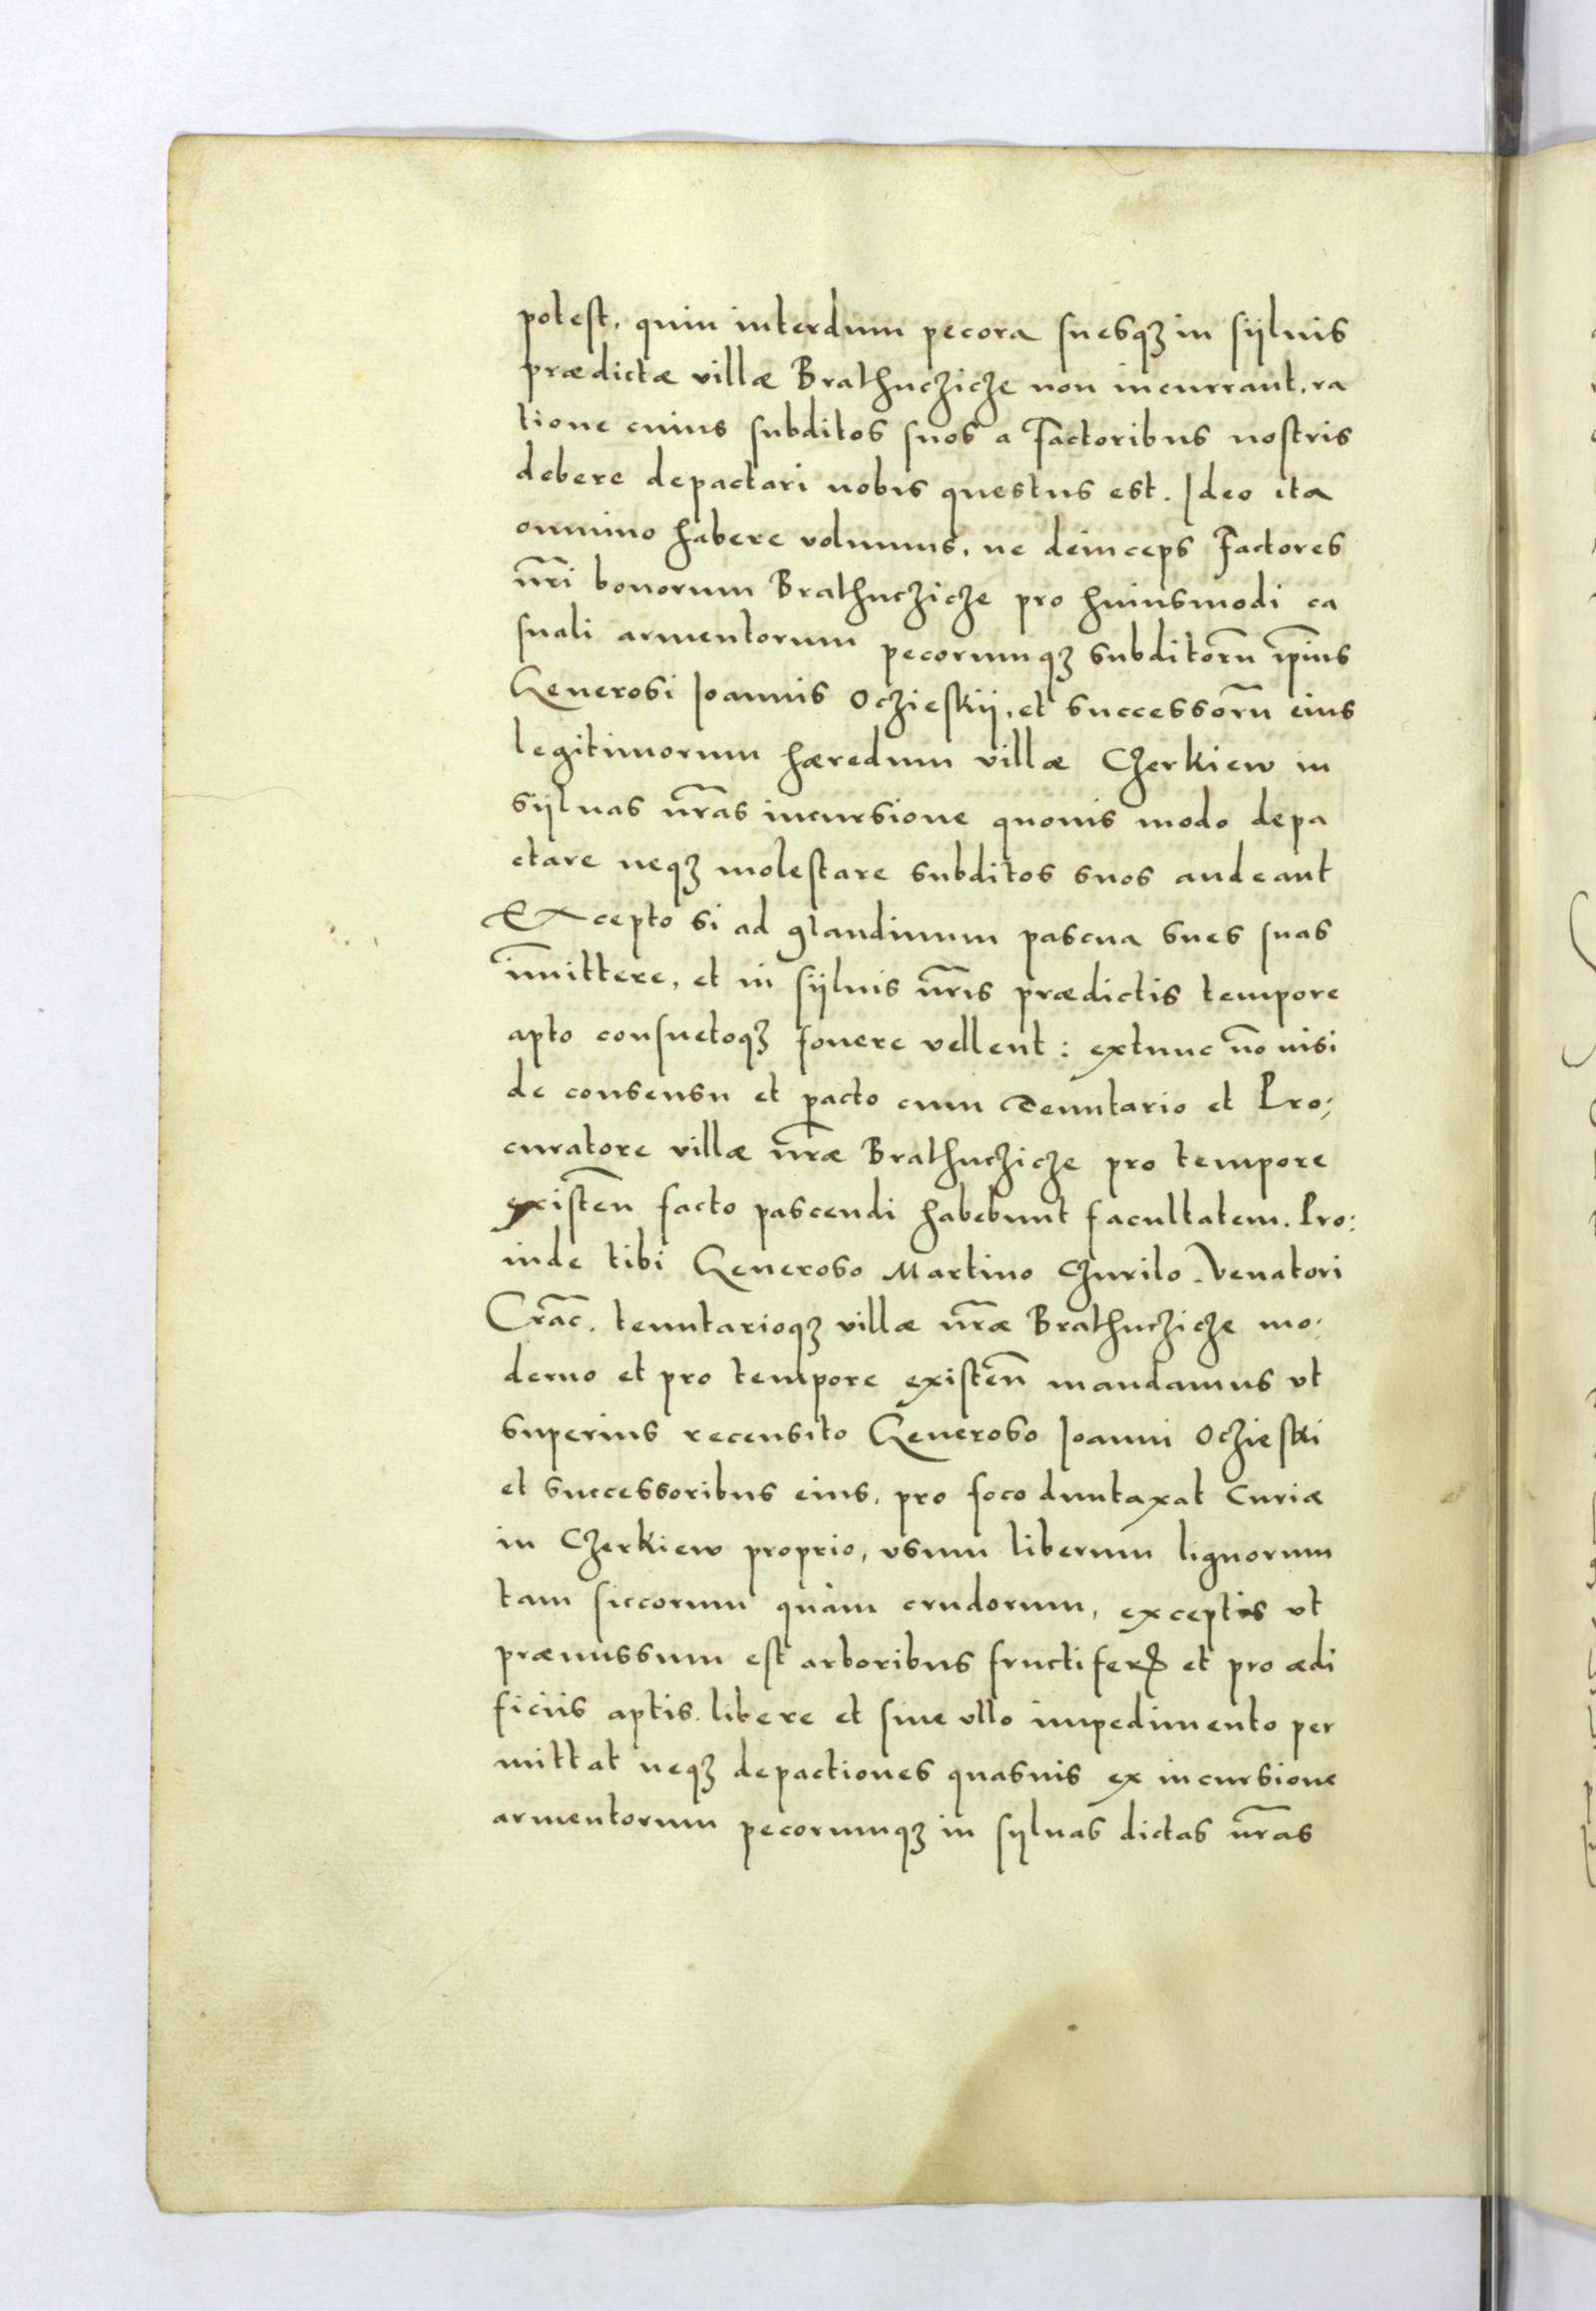 potest, quin interdum pecora suesqꝫ in sÿluis
prædictæ villæ Brathuczicze non incurrant, ra
tione cuius subditos suos a Factoribus nostris
debere depactari nobis questus est. Ideo ita
omnino habere volumus, ne deinceps Factores
nr̃i bonorum Brathuczicze pro huiusmodi ca
suali armentorum pecorumqꝫ subditorũ ip̃ius
Generosi Ioannis Oczieskij, et successorũ eius
legitimorum hæredum villæ Czerkiew in
sÿluas nr̃as incursione quouis modo depa
ctare neqꝫ molestare subditos suos audeant
Excepto si ad glandinum pascua sues suas
im̃ittere, et in sÿluis nr̃is prædictis tempore
apto consuetoqꝫ fouere vellent: extunc nõ nisi
de consensu et pacto cum Tenutario et Pro:
curatore villæ nr̃æ Brathuczicze pro tempore
existeñ facto pascendi habebunt facultatem. Pro:
inde tibi Generoso Martino Czurilo Venatori
Crac̃. tenutarioqꝫ villæ nr̃æ Brathuczicze mo:
derno et pro tempore existeñ mandamus vt
superius recensito Generoso Ioanni Oczieski
et successoribus eius, pro foco duntaxat Curiæ
in Czerkiew proprio, vsum liberum lignorum
tam siccorum quàm crudorum, exceptis vt
præmissum est arboribus fructiferꝭ et pro ædi
ficiis aptis. libere et sine vllo impedimento per
mittat neqꝫ depactiones quasuis ex incursione
armentorum pecorumqꝫ in sÿluas dictas nr̃as